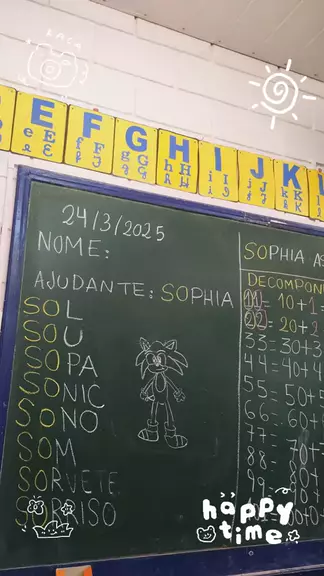 E F G H I J K
e E f F g G h H i I j J k K
24/3/2025
NOME:
AJUDANTE: SOPHIA
SOL
SOU
SOPA
SONIC
SONO
SOM
SORVETE
SORRISO
SOPHIA AS
DECOMPON
11= 10+1
22= 20+2
33= 30+3
44= 40+4
55= 50+5
66= 60+
77= 70+
88= 80+
happy
time